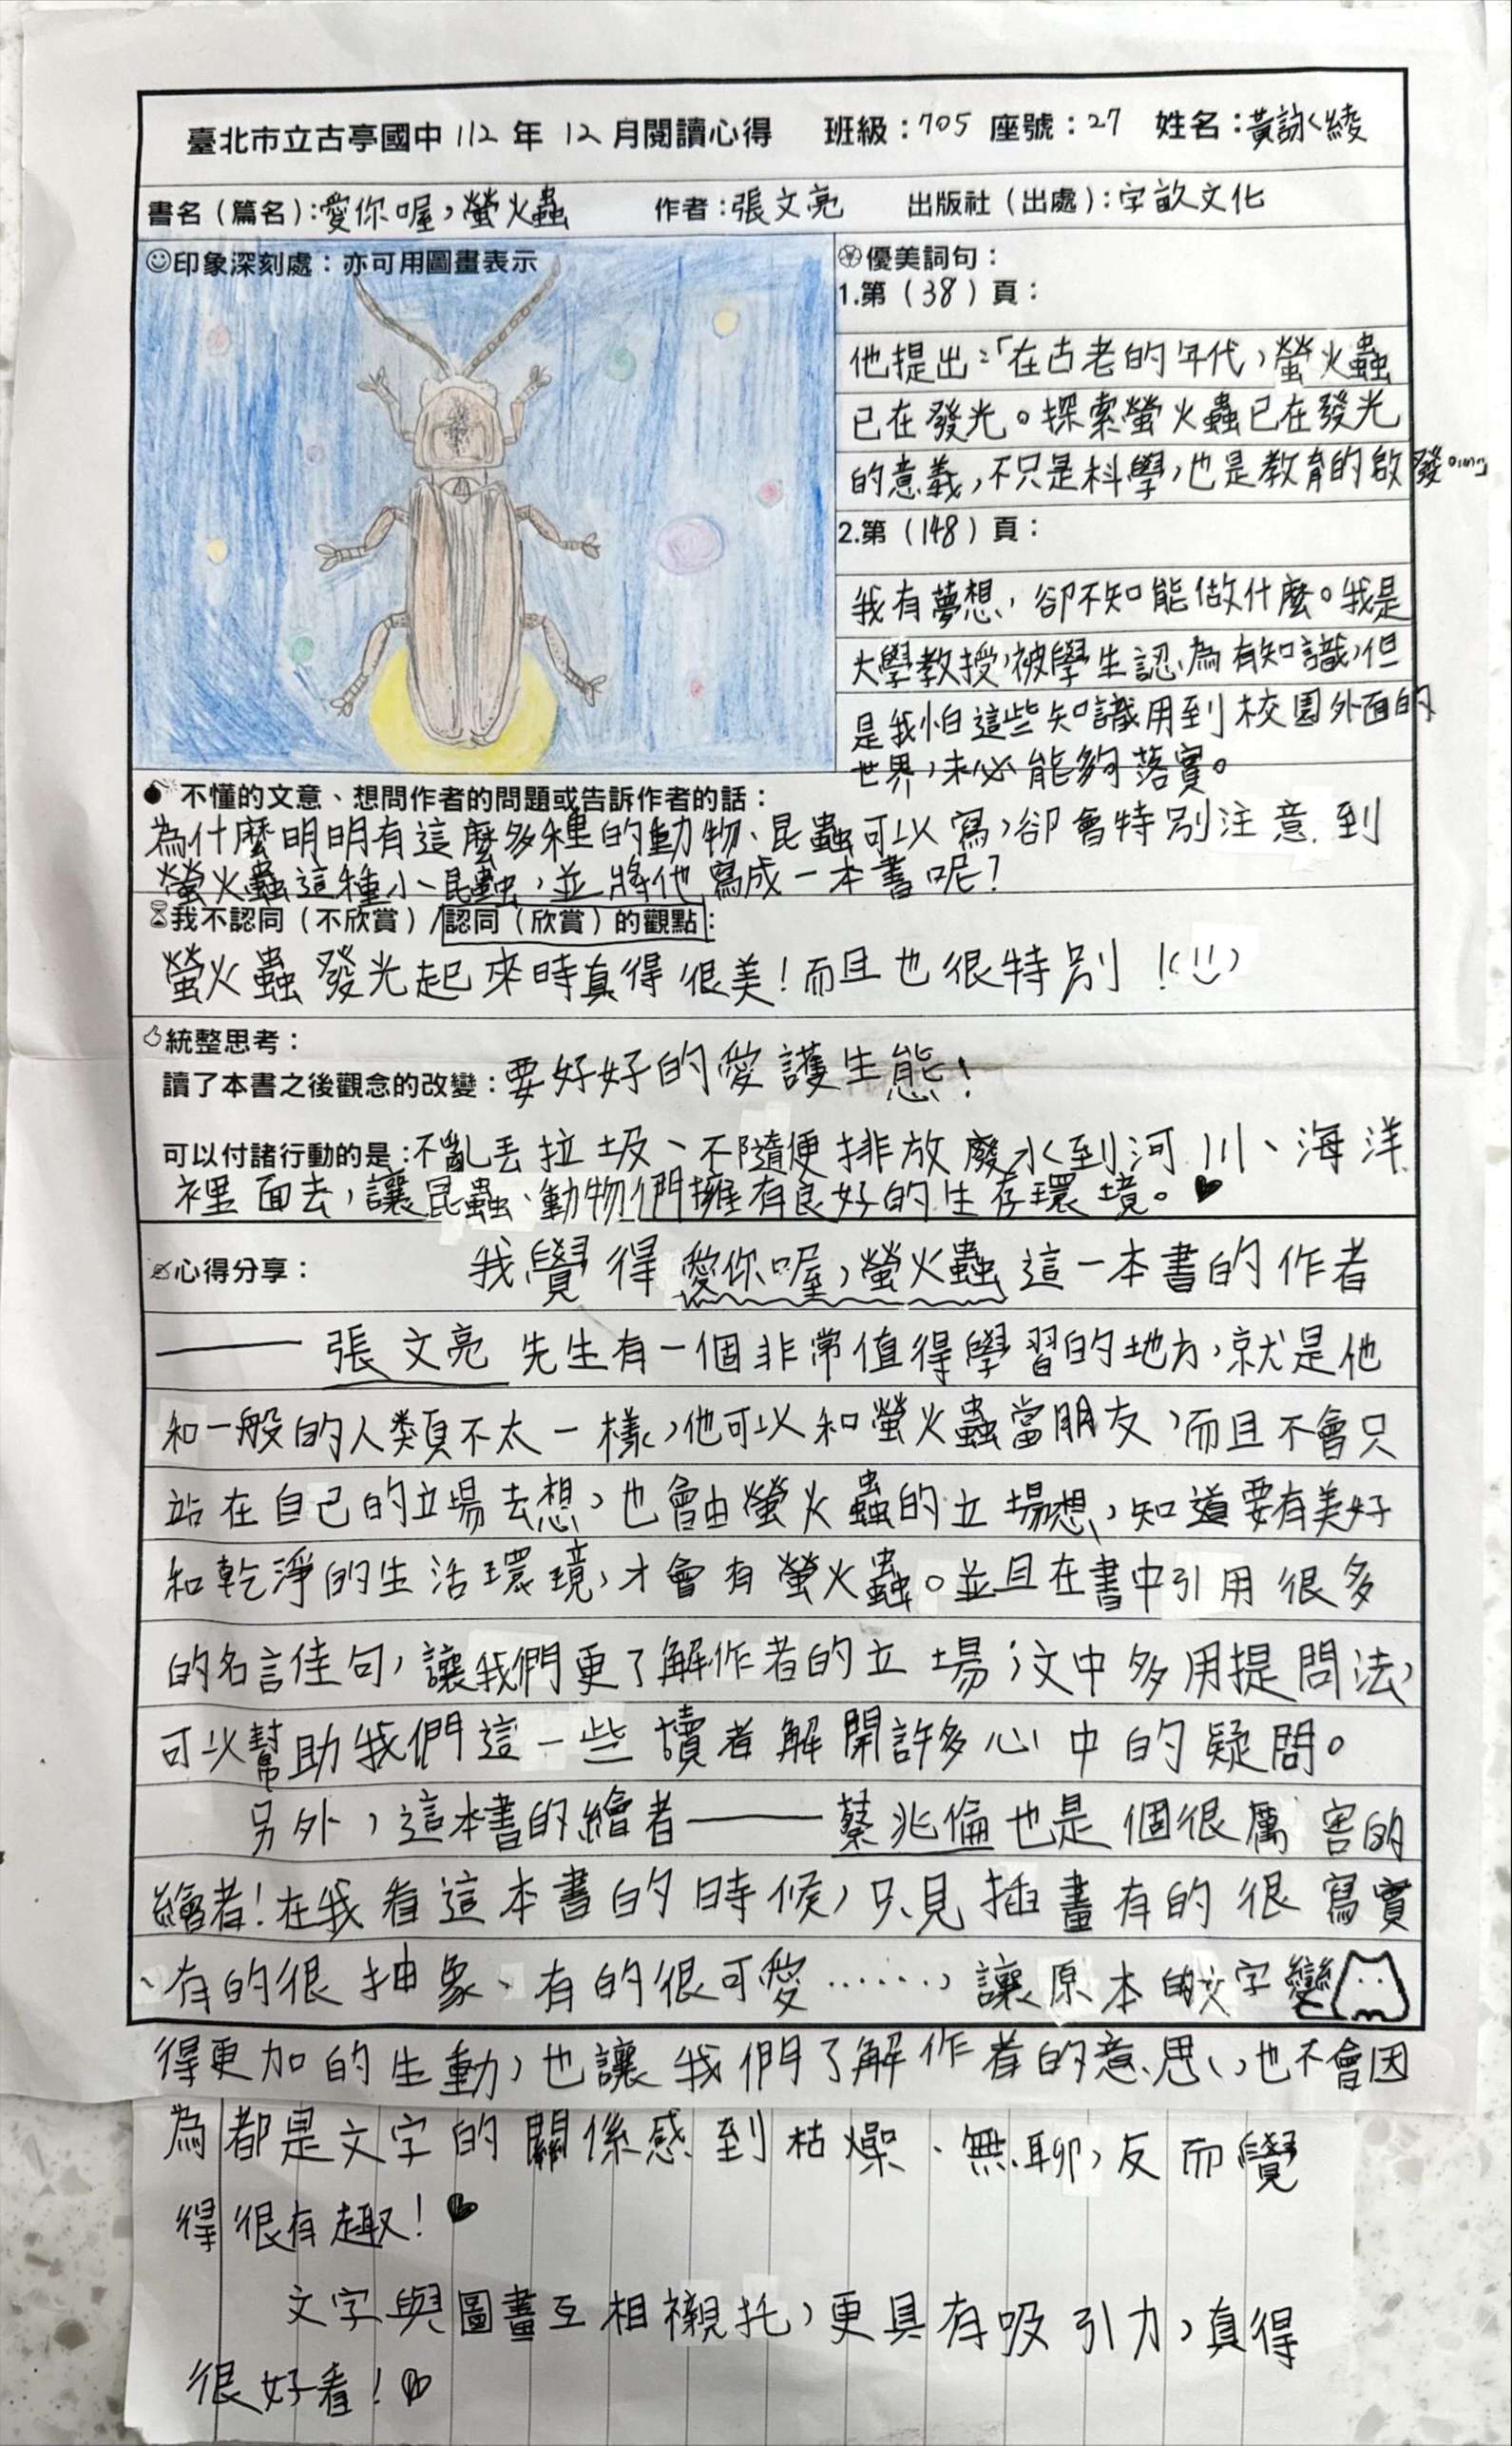 臺北市立古亭國中112年12月閱讀心得 班級:705 座號:27 姓名:黃詠綾
書名(篇名):愛你喔,螢火蟲 作者:張文亮 出版社(出處):字畝文化
☺印象深刻處:亦可用圖畫表示
優美詞句:
1.第(38)頁:
他提出:「在古老的年代,螢火蟲
已在發光。探索螢火蟲已在發光
的意義,不只是科學,也是教育的啟發。」
2.第(148)頁:
我有夢想,卻不知能做什麼。我是
大學教授,被學生認為有知識,但
是我怕這些知識用到校園外面的
世界,未必能夠落實。
不懂的文意、想問作者的問題或告訴作者的話:
為什麼明明有這麼多種的動物、昆蟲可以寫,卻會特別注意到
螢火蟲這種小昆蟲,並將他寫成一本書呢?
我不認同(不欣賞)/認同(欣賞)的觀點:
螢火蟲發光起來時真得很美!而且也很特別!(!!)
統整思考:
讀了本書之後觀念的改變:要好好的愛護生態!
可以付諸行動的是:不亂丟垃圾、不隨便排放廢水到河川、海洋
裡面去,讓昆蟲、動物們擁有良好的生存環境。♥
心得分享: 我覺得愛你喔,螢火蟲這一本書的作者
——張文亮先生有一個非常值得學習的地方,就是他
和一般的人類不太一樣,他可以和螢火蟲當朋友,而且不會只
站在自己的立場去想,也會由螢火蟲的立場想,知道要有美好
和乾淨的生活環境,才會有螢火蟲。並且在書中引用很多
的名言佳句,讓我們更了解作者的立場;文中多用提問法,
可以幫助我們這一些讀者解開許多心中的疑問。
另外,這本書的繪者——蔡兆倫也是個很厲害的
繪者!在我看這本書的時候,只見插畫有的很寫實
、有的很抽象、有的很可愛……,讓原本的文字變
得更加的生動,也讓我們了解作者的意思,也不會因
為都是文字的關係感到枯燥、無聊,反而覺
得很有趣!♥
文字與圖畫互相襯托,更具有吸引力,真得
很好看!♥